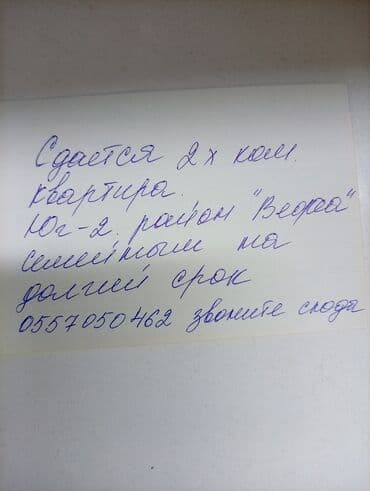 Сдается 2х ком.
квартира.
Юг-2. район "Вефа"
семейным на
долгий срок
0557050462 звоните сюда